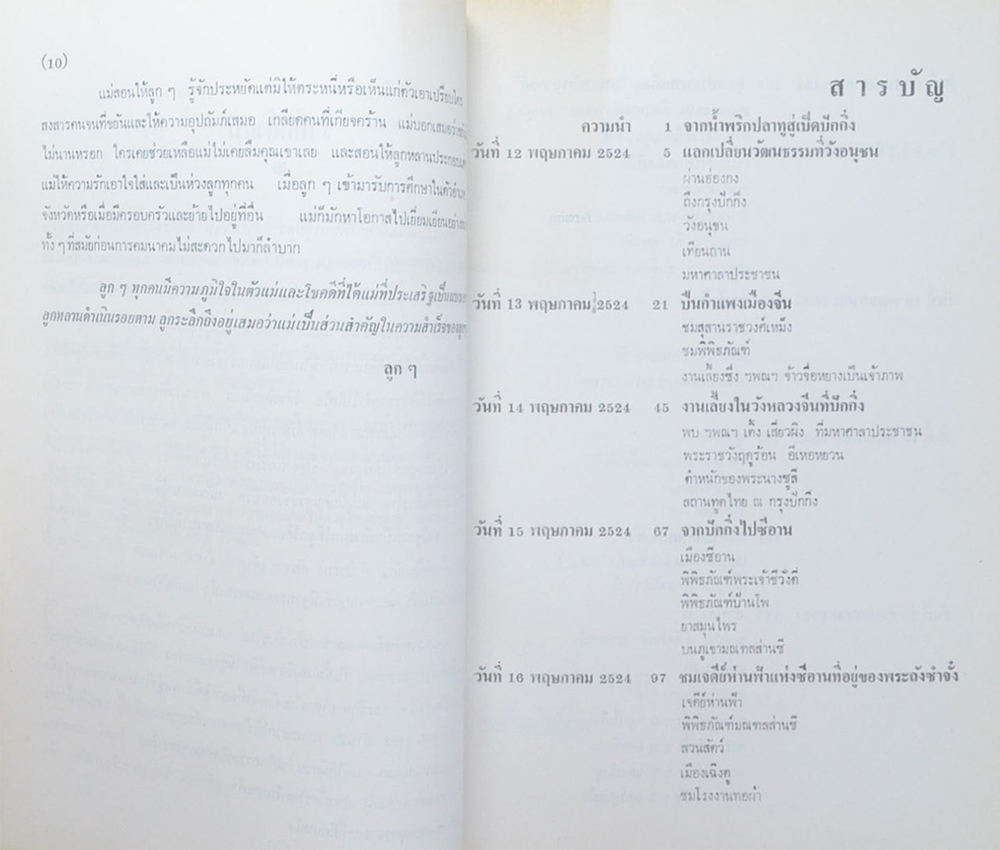 (10)
แม่สอนให้ลูก ๆ รู้จักประหยัดแต่มิให้ตระหนี่หรือเห็นแก่ตัวเอาเปรียบใคร
สงสารคนจนที่ขยันและให้ความอุปถัมภ์เสมอ เกลียดคนที่เกียจคร้าน แม่บอกเสมอว่า
ไม่นานหรอก ใครเคยช่วยเหลือแม่ไม่เคยลืมคุณเขาเลย และสอนให้ลูกหลานประกอบ
แม่ให้ความรักเอาใจใส่และเป็นห่วงลูกทุกคน เมื่อลูก ๆ เข้ามารับการศึกษาในตัว
จังหวัดหรือเมื่อมีครอบครัวและย้ายไปอยู่ที่อื่น แม่ก็มักหาโอกาสไปเยี่ยมเยียน
ทั้ง ๆ ที่สมัยก่อนการคมนาคมไม่สะดวกไปมาก็ลำบาก
ลูก ๆ ทุกคนมีความภูมิใจในตัวแม่และโชคดีที่ได้แม่ที่ประเสริฐเป็น
ลูกหลานดำเนินรอยตาม ลูกระลึกถึงอยู่เสมอว่าแม่เป็นส่วนสำคัญในความสำเร็จของ
ลูก ๆ
สารบัญ
ความนำ 1 จากน้ำพริกปลาทูสู่เป็ดปักกิ่ง
วันที่ 12 พฤษภาคม 2524 5 แลกเปลี่ยนวัฒนธรรมที่วังอนุชน
ผ่านฮ่องกง
ถึงกรุงปักกิ่ง
วังอนุชน
เทียนถาน
มหาศาลาประชาชน
วันที่ 13 พฤษภาคม 2524 21 ปีนกำแพงเมืองจีน
ชมสุสานราชวงศ์เหม็ง
ชมพิพิธภัณฑ์
งานเลี้ยงซึ่ง ฯพณฯ จ้าวจื่อหยางเป็นเจ้าภาพ
วันที่ 14 พฤษภาคม 2524 45 งานเลี้ยงในวังหลวงจีนที่ปักกิ่ง
พบ ฯพณฯ เติ้ง เสี่ยวผิง ที่มหาศาลาประชาชน
พระราชวังฤดูร้อน อี๋เหอหยวน
ตำหนักของพระนางซูสี
สถานทูตไทย ณ กรุงปักกิ่ง
วันที่ 15 พฤษภาคม 2524 67 จากปักกิ่งไปซีอาน
เมืองซีอาน
พิพิธภัณฑ์พระเจ้าชีวั่งตี่
พิพิธภัณฑ์บ้านโพ
ยาสมุนไพร
บนภูเขามณฑลส่านซี
วันที่ 16 พฤษภาคม 2524 97 ชมเจดีย์ห่านฟ้าแห่งซีอานที่อยู่ของพระถังซำจั๋ง
เจดีย์ห่านฟ้า
พิพิธภัณฑ์มณฑลส่านซี
สวนสัตว์
เมืองเฉิงตู
ชมโรงงานทอผ้า